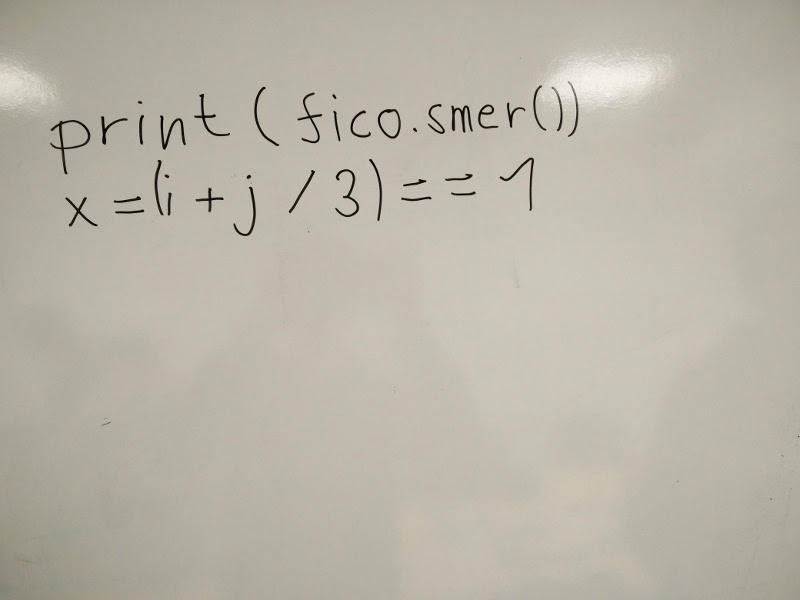 print(fico.smer())
x=(i+j/3)==1